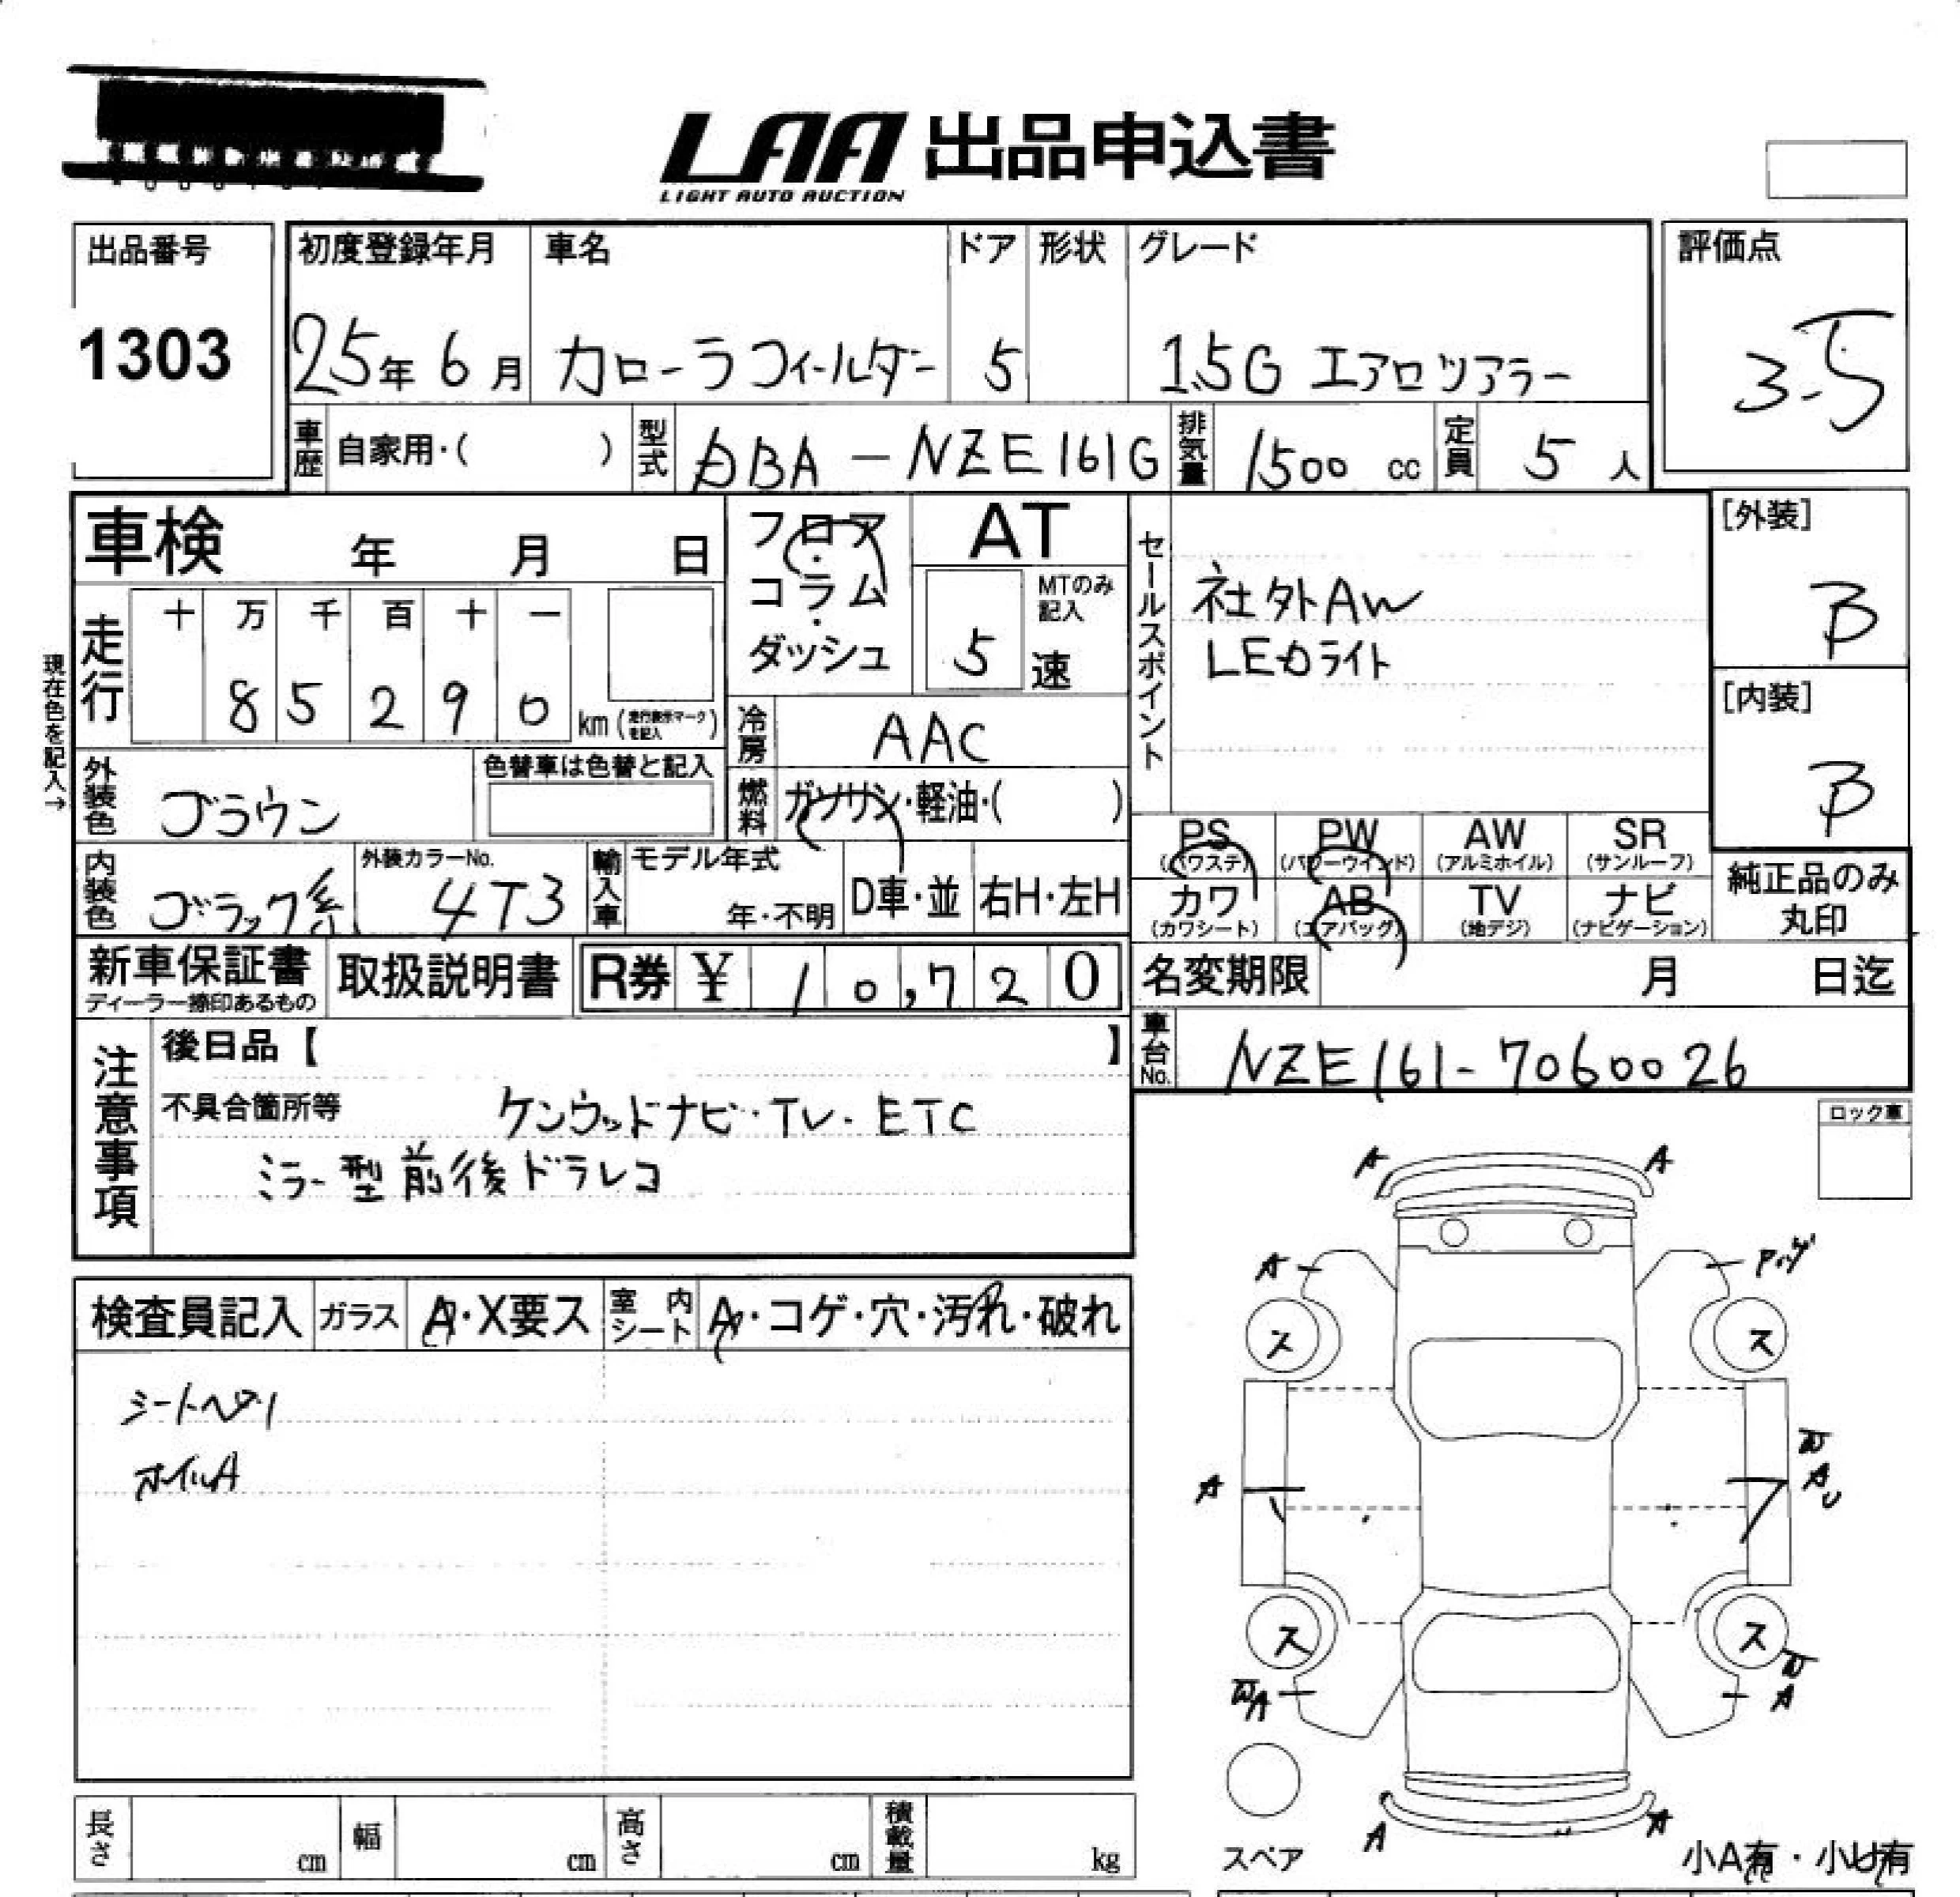 LAA 出品申込書
LIGHT AUTO AUCTION
出品番号
1303
初度登録年月
25年 6月
車名
カローラフィールダー
ドア
5
形状
グレード
1.5G エアロツアラー
評価点
3.5
車歴 自家用・( )
型式 DBA-NZE161G
排気量 1500 cc
定員 5 人
車検 年 月 日
フロア・コラム・ダッシュ
AT
MTのみ記入
5 速
セールスポイント
社外AW
LEDライト
[外装]
B
[内装]
B
現在色を記入→
走行
十 万 千 百 十 一
8 5 2 9 0 km (走行表示マークを記入)
冷房 AAC
外装色 ブラウン
色替車は色替と記入
燃料 ガソリン・軽油・( )
内装色 ブラック系
外装カラーNo.
4T3
輸入車
モデル年式
年・不明
D車・並
右H・左H
PS (パワステ)
PW (パワーウインド)
AW (アルミホイル)
SR (サンルーフ)
カワ (カワシート)
AB (エアバック)
TV (地デジ)
ナビ (ナビゲーション)
純正品のみ丸印
新車保証書
ディーラー捺印あるもの
取扱説明書
R券 ¥ 10,720
名変期限 月 日迄
車台No. NZE161-7060026
注意事項
後日品【 】
不具合箇所等
ケンウッドナビ・TV・ETC
ミラー型前後ドラレコ
ロック車
検査員記入
ガラス A・X要ス
室内シート A・コゲ・穴・汚れ・破れ
シートヘタリ
ホイルA
A A
A
ス ス
A
W
A
U
ス ス
W
A
WA
A A
スペア
小A有・小U有
長さ cm
幅 cm
高さ cm
積載量 kg